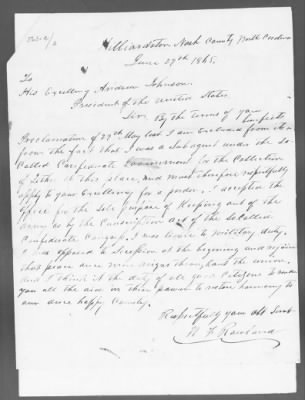 Hilliardston Nash County North Carolina
June 27th 1865.
To
His Excellency Andrew Johnson
President of the United States
Sir, By the terms of your
Proclamation of 29th May last I am excluded from
from the fact that I was a Sub agent under the So
Called Confederate Government for the Collection
of Tithe at this place, and most therefore respectfully
apply to your Excellency for a pardon. I accepted the
Office for the Sole purpose of Keeping out of the
army as by the Conscription act of the So Called
Confederate Congress, I was liable to military duty.
I was opposed to Secession at the beginning and rejoice
that peace once more reigns throughout the union,
and I think it the duty of all good Citizens to render
you all the aid in their power to restore harmony to
our once happy Country.
Respectfully your Obt Servt
Rowland